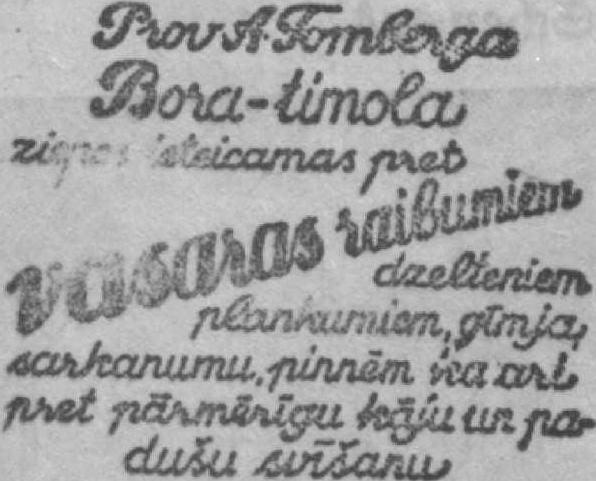 Prov A. Tomberga
Bora-timola
ziepes ieteicamas pret
vasaras raibumiem
dzelteniem
plankumiem, gīmja,
sarkanumu, pinnēm kā arī
pret pārmērīgu kāju un pa-
dušu svīšanu